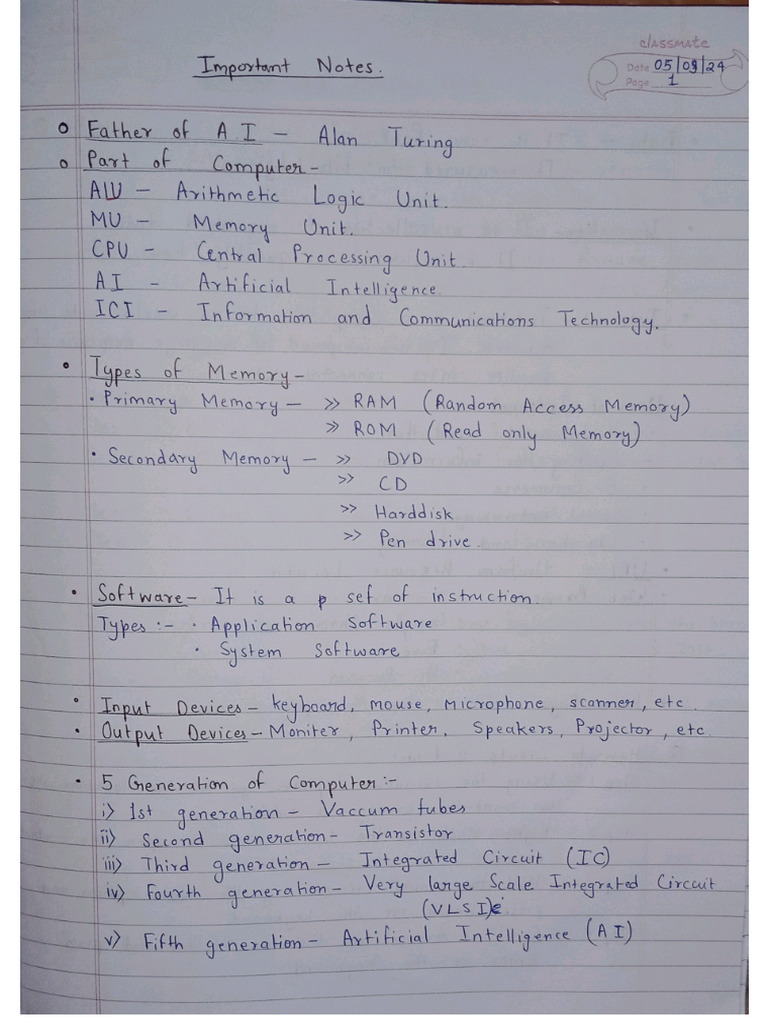 classmate
Date 05/09/24
Page 1
Important Notes.
Father of AI - Alan Turing
Part of Computer -
ALU - Arithmetic Logic Unit.
MU - Memory Unit.
CPU - Central Processing Unit
AI - Artificial Intelligence
ICI - Information and Communications Technology.
• Types of Memory -
• Primary Memory - >> RAM (Random Access Memory)
>> ROM (Read only Memory)
• Secondary Memory - >> DVD
>> CD
>> Harddisk
>> Pen drive.
• Software - It is a p set of instruction.
Types :- • Application Software
• System Software
• Input Devices - keyboard, mouse, Microphone, scanner, etc
• Output Devices - Moniter, Printer, Speakers, Projector, etc.
• 5 Generation of Computer :-
i) 1st generation - Vaccum tubes
ii) Second generation - Transistor
iii) Third generation - Integrated Circuit (IC)
iv) Fourth generation - Very large Scale Integrated Circuit
(VLSI)
v) Fifth generation - Artificial Intelligence (AI)